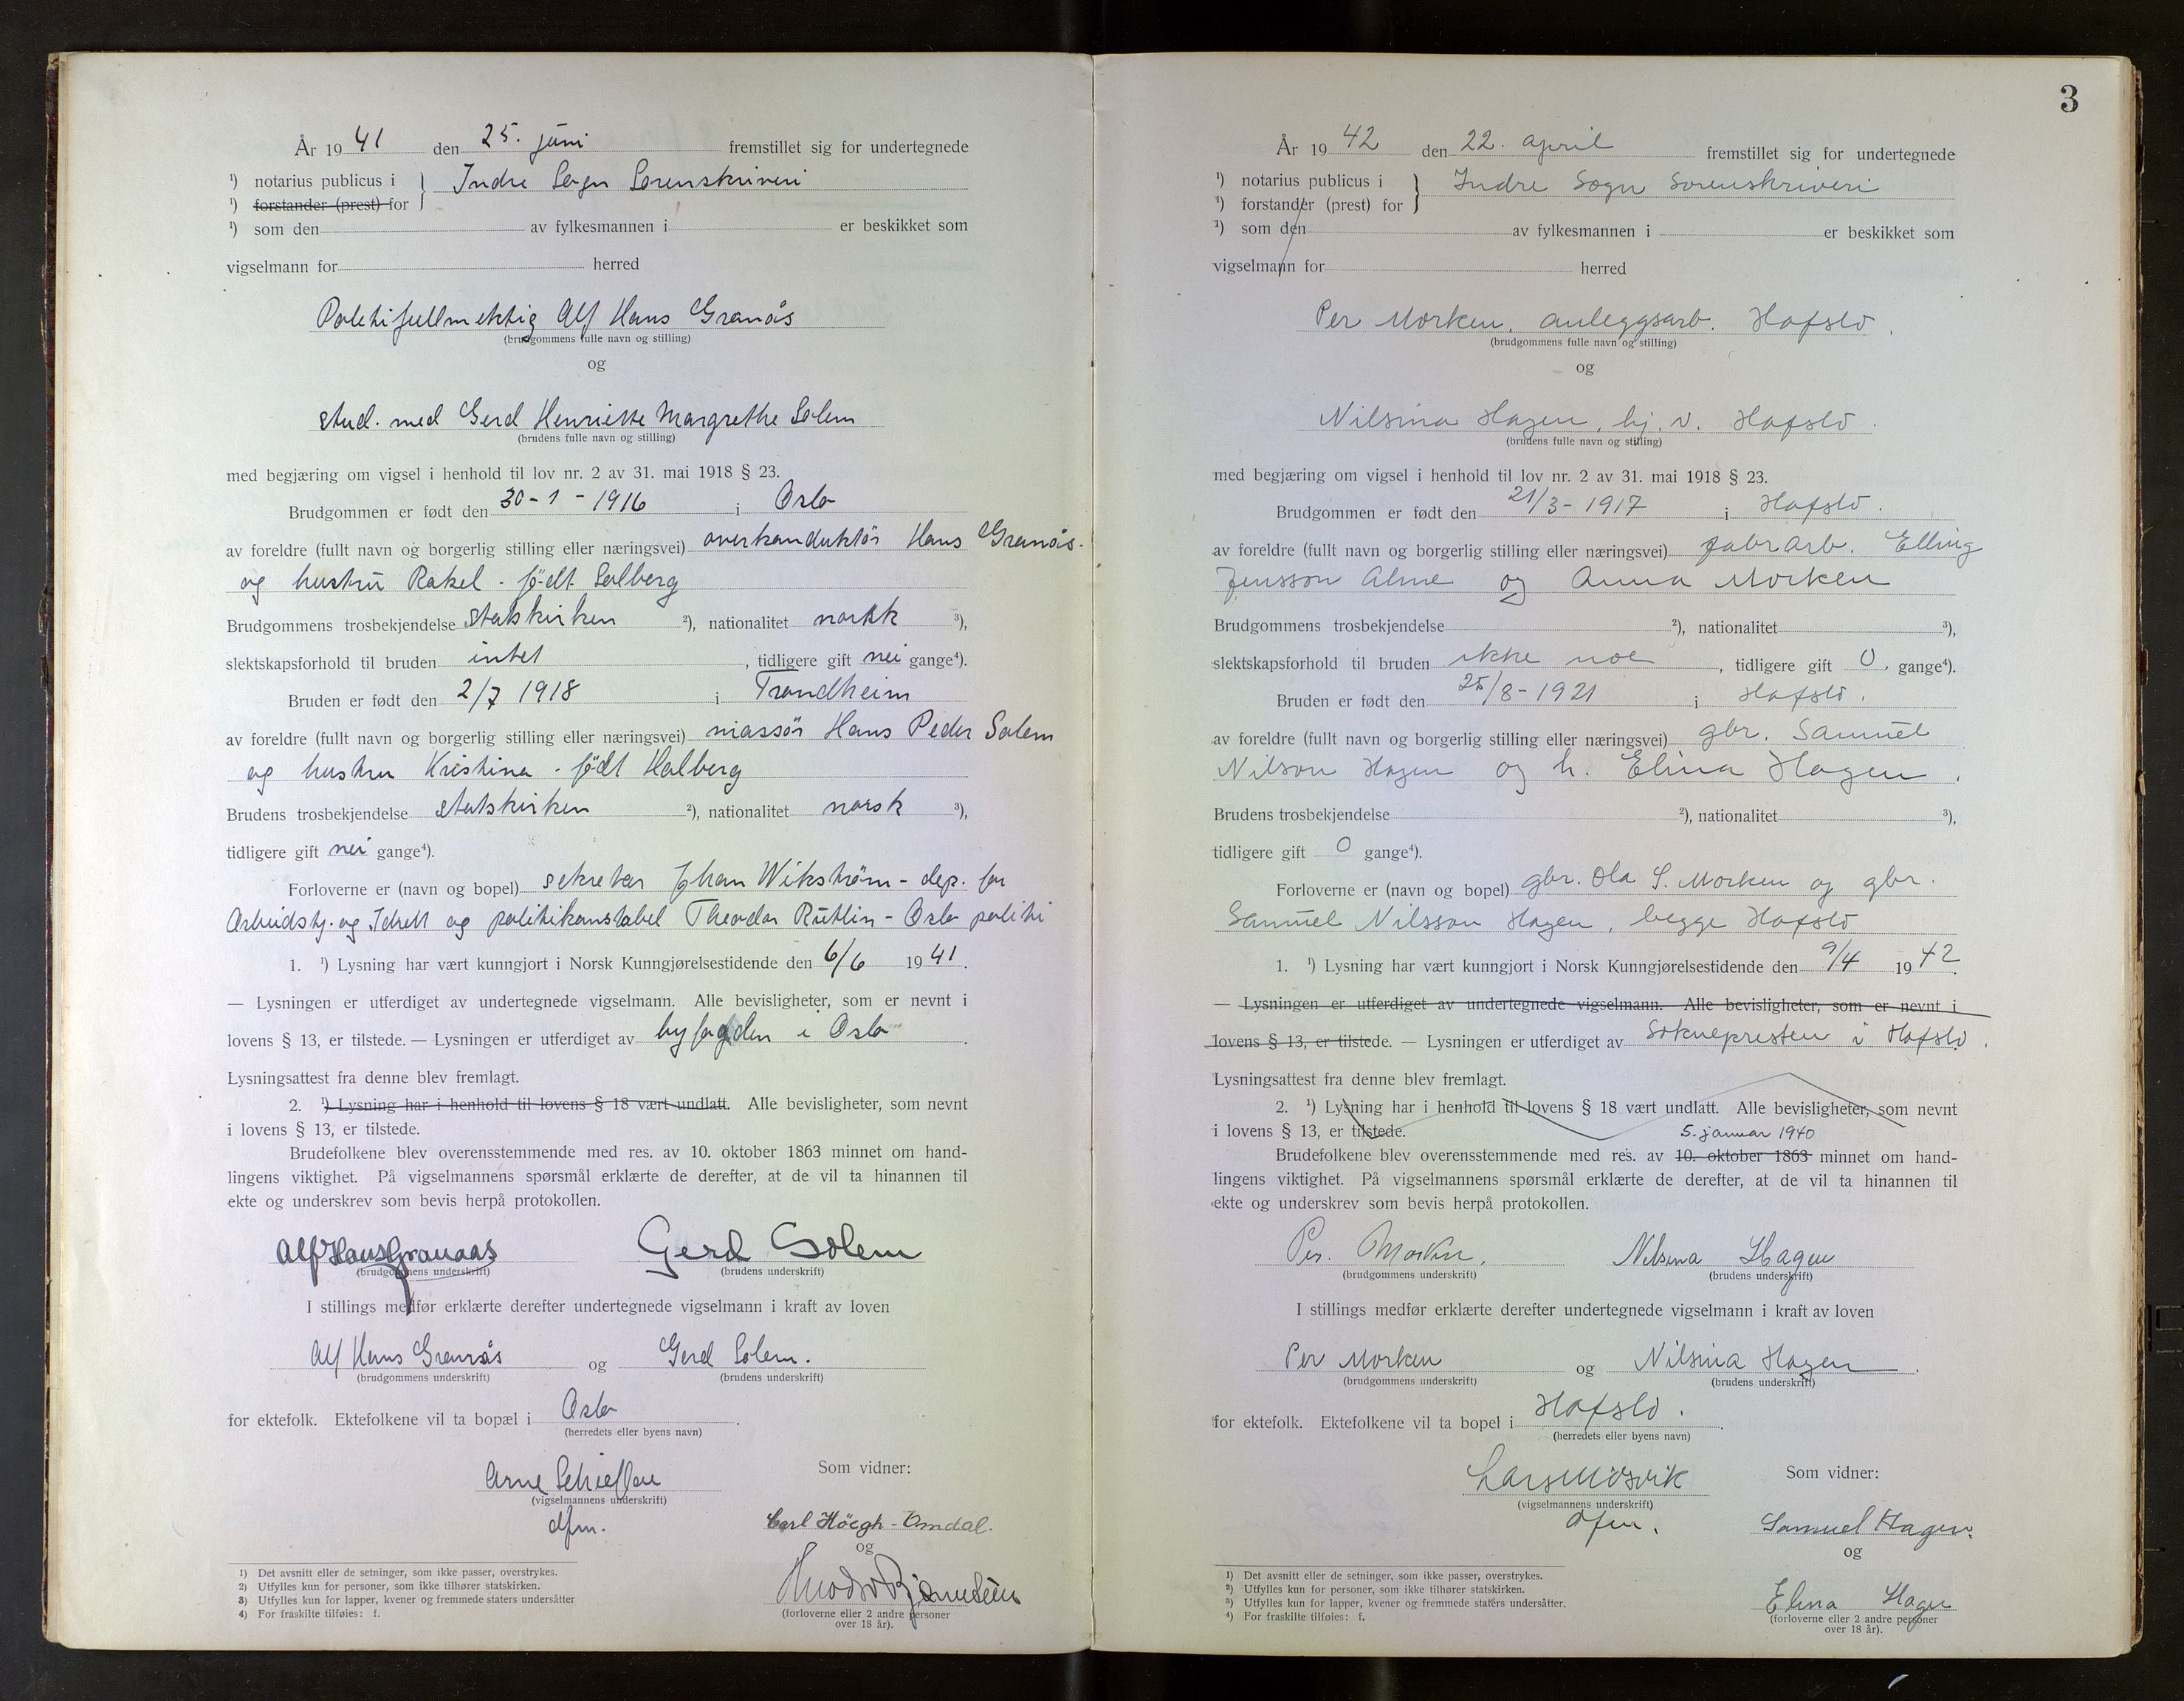 År 19 41 den 25. juni fremstillet sig for undertegnede
¹) notarius publicus i } Indre Sogn Sorenskriveri
¹) forstander (prest) for
¹) som den av fylkesmannen i er beskikket som
vigselmann for herred
Politifullmektig Alf Hans Granås
(brudgommens fulle navn og stilling)
og
stud. med Gerd Henriette Margrethe Solem
(brudens fulle navn og stilling)
med begjæring om vigsel i henhold til lov nr. 2 av 31. mai 1918 § 23.
Brudgommen er født den 30-1-1916 i Oslo
av foreldre (fullt navn og borgerlig stilling eller næringsvei) overkonduktör Hans Granås.
og hustru Rakel. född Solberg
Brudgommens trosbekjendelse Statskirken ²), nationalitet norsk ³),
slektskapsforhold til bruden intet, tidligere gift nei gange⁴).
Bruden er født den 2/7 1918 i Trondheim
av foreldre (fullt navn og borgerlig stilling eller næringsvei) massör Hans Peder Solem
og hustru Kristina. födt Halberg
Brudens trosbekjendelse statskirken ²), nationalitet norsk ³),
tidligere gift nei gange⁴).
Forloverne er (navn og bopel) sekretær Johan Wikström - dep. for
Arbeidstj. og Idrett og politikonstabel Theodor Rütlin - Oslo politi
1. ¹) Lysning har vært kunngjort i Norsk Kunngjørelsestidende den 6/6 1941.
— Lysningen er utferdiget av undertegnede vigselmann. Alle bevisligheter, som er nevnt i
lovens § 13, er tilstede. — Lysningen er utferdiget av byfogden i Oslo.
Lysningsattest fra denne blev fremlagt.
2. ¹) Lysning har i henhold til lovens § 18 vært undlatt. Alle bevisligheter, som nevnt
i lovens § 13, er tilstede.
Brudefolkene blev overensstemmende med res. av 10. oktober 1863 minnet om hand-
lingens viktighet. På vigselmannens spørsmål erklærte de derefter, at de vil ta hinannen til
ekte og underskrev som bevis herpå protokollen.
Alf Hans Granaas Gerd Solem
(brudgommens underskrift) (brudens underskrift)
I stillings medfør erklærte derefter undertegnede vigselmann i kraft av loven
Alf Hans Granås og Gerd Solem.
(brudgommens underskrift) (brudens underskrift)
for ektefolk. Ektefolkene vil ta bopæl i Oslo.
(herredets eller byens navn)
Arne Som vidner:
(vigselmannens underskrift)
dfm. Carl Höegh-Omdal.
og
(forloverne eller 2 andre personer
over 18 år).
1) Det avsnitt eller de setninger, som ikke passer, overstrykes.
2) Utfylles kun for personer, som ikke tilhører statskirken.
3) Utfylles kun for lapper, kvener og fremmede staters undersåtter
4) For fraskilte tilføies: f.
3
År 19 42 den 22. april fremstillet sig for undertegnede
¹) notarius publicus i } Indre Sogn Sorenskriveri
¹) forstander (prest) for
¹) som den av fylkesmannen i er beskikket som
vigselmann for herred
Per Morken, anleggsarb. Hafslo.
(brudgommens fulle navn og stilling)
og
Nilsina Hagen, hj. v. Hafslo.
(brudens fulle navn og stilling)
med begjæring om vigsel i henhold til lov nr. 2 av 31. mai 1918 § 23.
Brudgommen er født den 21/3-1917 i Hafslo.
av foreldre (fullt navn og borgerlig stilling eller næringsvei) fabrarb. Elling
Jensson Alme og Anna Morken
Brudgommens trosbekjendelse ²), nationalitet ³),
slektskapsforhold til bruden ikke noe, tidligere gift 0. gange⁴).
Bruden er født den 25/8-1921 i Hafslo.
av foreldre (fullt navn og borgerlig stilling eller næringsvei) gbr. Samuel
Nilson Hagen og h. Elina Hagen.
Brudens trosbekjendelse ²), nationalitet ³),
tidligere gift 0 gange⁴).
Forloverne er (navn og bopel) gbr. Ola S. Morken og gbr.
Samuel Nilsson Hagen, begge Hafslo
1. ¹) Lysning har vært kunngjort i Norsk Kunngjørelsestidende den 9/4 1942.
— Lysningen er utferdiget av undertegnede vigselmann. Alle bevisligheter, som er nevnt i
lovens § 13, er tilstede. — Lysningen er utferdiget av Soknepresten i Hafslo.
Lysningsattest fra denne blev fremlagt.
2. ¹) Lysning har i henhold til lovens § 18 vært undlatt. Alle bevisligheter, som nevnt
i lovens § 13, er tilstede. 5. januar 1940
Brudefolkene blev overensstemmende med res. av 10. oktober 1863 minnet om hand-
lingens viktighet. På vigselmannens spørsmål erklærte de derefter, at de vil ta hinannen til
ekte og underskrev som bevis herpå protokollen.
Per. Morken. Nilsina Hagen
(brudgommens underskrift) (brudens underskrift)
I stillings medfør erklærte derefter undertegnede vigselmann i kraft av loven
Per Morken og Nilsina Hagen.
(brudgommens underskrift) (brudens underskrift)
for ektefolk. Ektefolkene vil ta bopel i Hafslo.
(herredets eller byens navn)
Lars Midsvik Som vidner:
(vigselmannens underskrift)
dfm. Samuel Hagen.
og
Elina Hagen
(forloverne eller 2 andre personer
over 18 år).
1) Det avsnitt eller de setninger, som ikke passer, overstrykes.
2) Utfylles kun for personer, som ikke tilhører statskirken.
3) Utfylles kun for lapper, kvener og fremmede staters undersåtter.
4) For fraskilte tilføies: f.